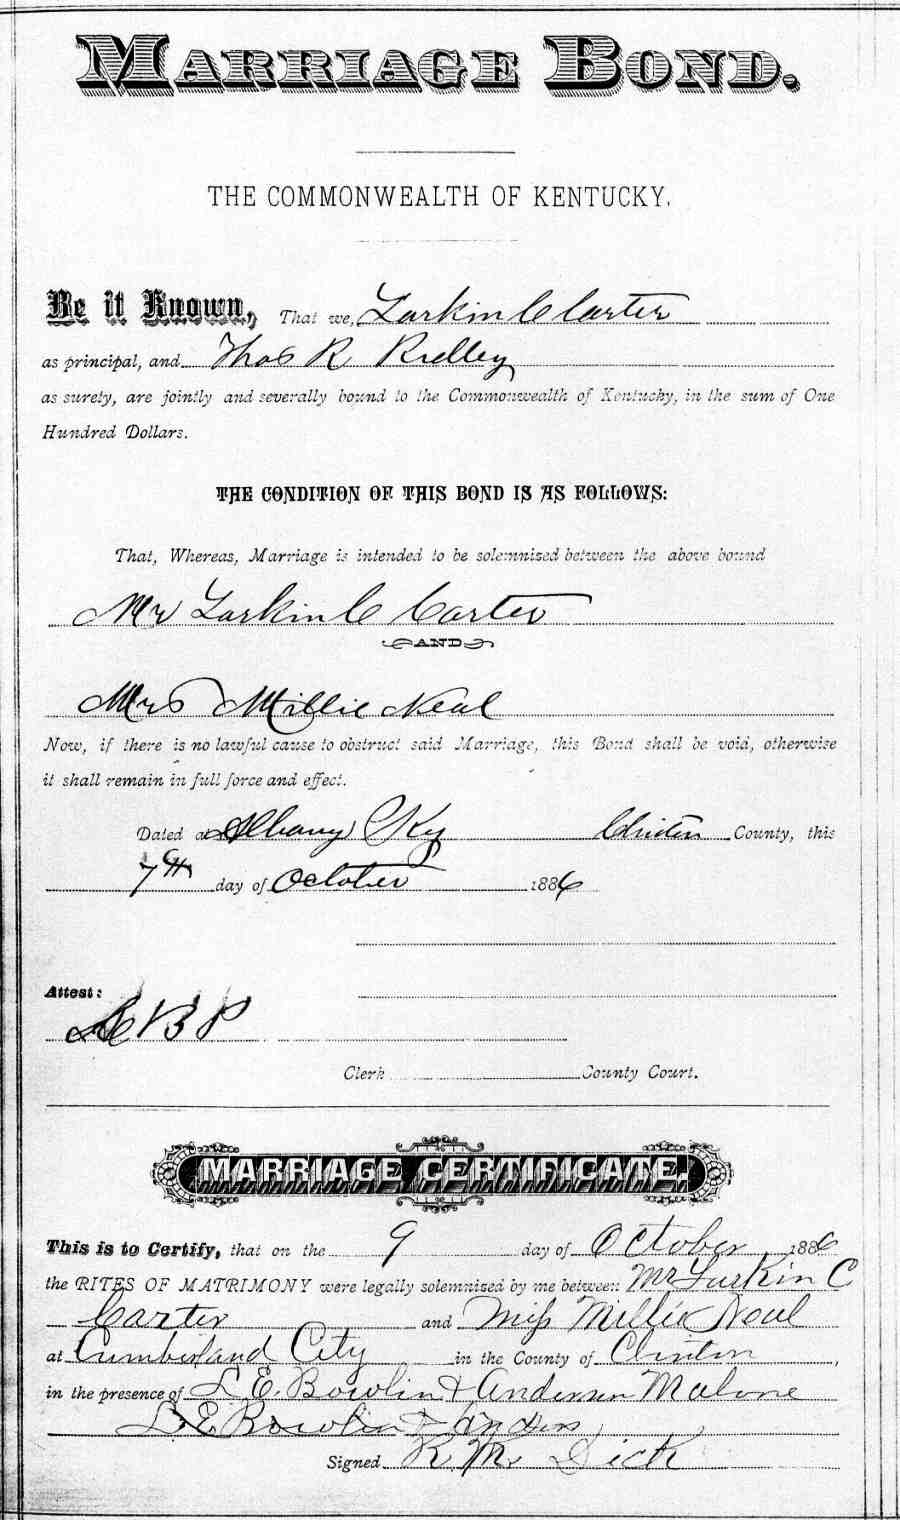 MARRIAGE BOND.
THE COMMONWEALTH OF KENTUCKY.
Be it Known, That we, Larkin C Carter
as principal, and Thos R Ridley
as surety, are jointly and severally bound to the Commonwealth of Kentucky, in the sum of One
Hundred Dollars.
THE CONDITION OF THIS BOND IS AS FOLLOWS:
That, Whereas, Marriage is intended to be solemnized between the above bound
Mr Larkin C Carter
AND
Mrs Millie Neal
Now, if there is no lawful cause to obstruct said Marriage, this Bond shall be void, otherwise
it shall remain in full force and effect.
Dated at Albany Ky Clinton County, this
7th day of October 1886
Attest:
B P
Clerk County Court.
MARRIAGE CERTIFICATE.
This is to Certify, that on the 9 day of October 1886
the RITES OF MATRIMONY were legally solemnized by me between Mr Larkin C
Carter and Miss Millie Neal
at Cumberland City in the County of Clinton,
in the presence of L. E. Bowlin & Anderson Malone
L. E. Bowlin &
Signed R. M. Dick